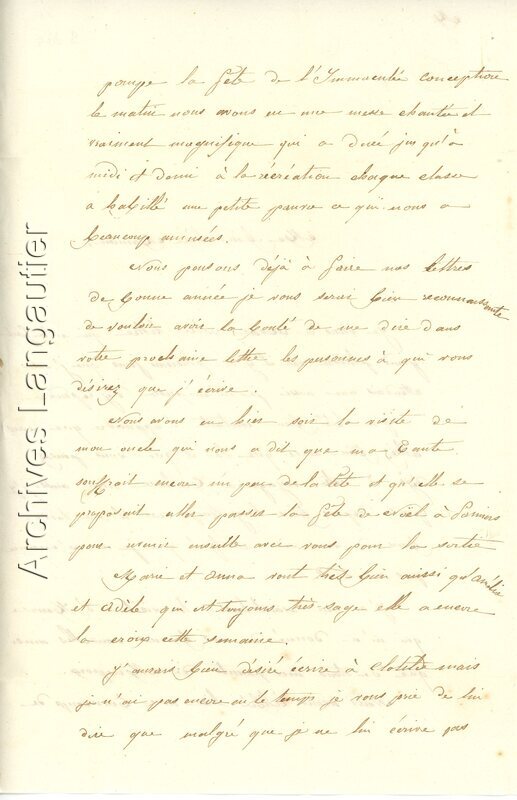 pompe la fête de l'Immaculée conception
le matin nous avons eu une messe chantée et
vraiment magnifique qui a duré jusqu'à
midi et demi à la récréation chaque classe
a habillé une petite pauvre ce qui nous a
beaucoup amusées.
Nous pensons déjà à faire nos lettres
de bonne année je vous serai bien reconnaissante
de vouloir avoir la bonté de me dire dans
votre prochaine lettre les personnes à qui vous
désirez que j'écrive.
Nous avons eu hier soir la visite de
mon oncle qui nous a dit que ma tante
souffrait encore un peu de la tête et qu'elle se
proposait aller passer la fête de Noël à Pamiers
pour venir ensuite avec vous pour la sortie
Marie et Anna vont très bien aussi qu'
et Adèle qui est toujours très sage elle a encore
la croix cette semaine.
J'aurais bien désiré écrire à Clotilde mais
je n'ai pas encore eu le temps je vous prie de lui
dire que malgré que je ne lui écrive pas
Archives Langautier